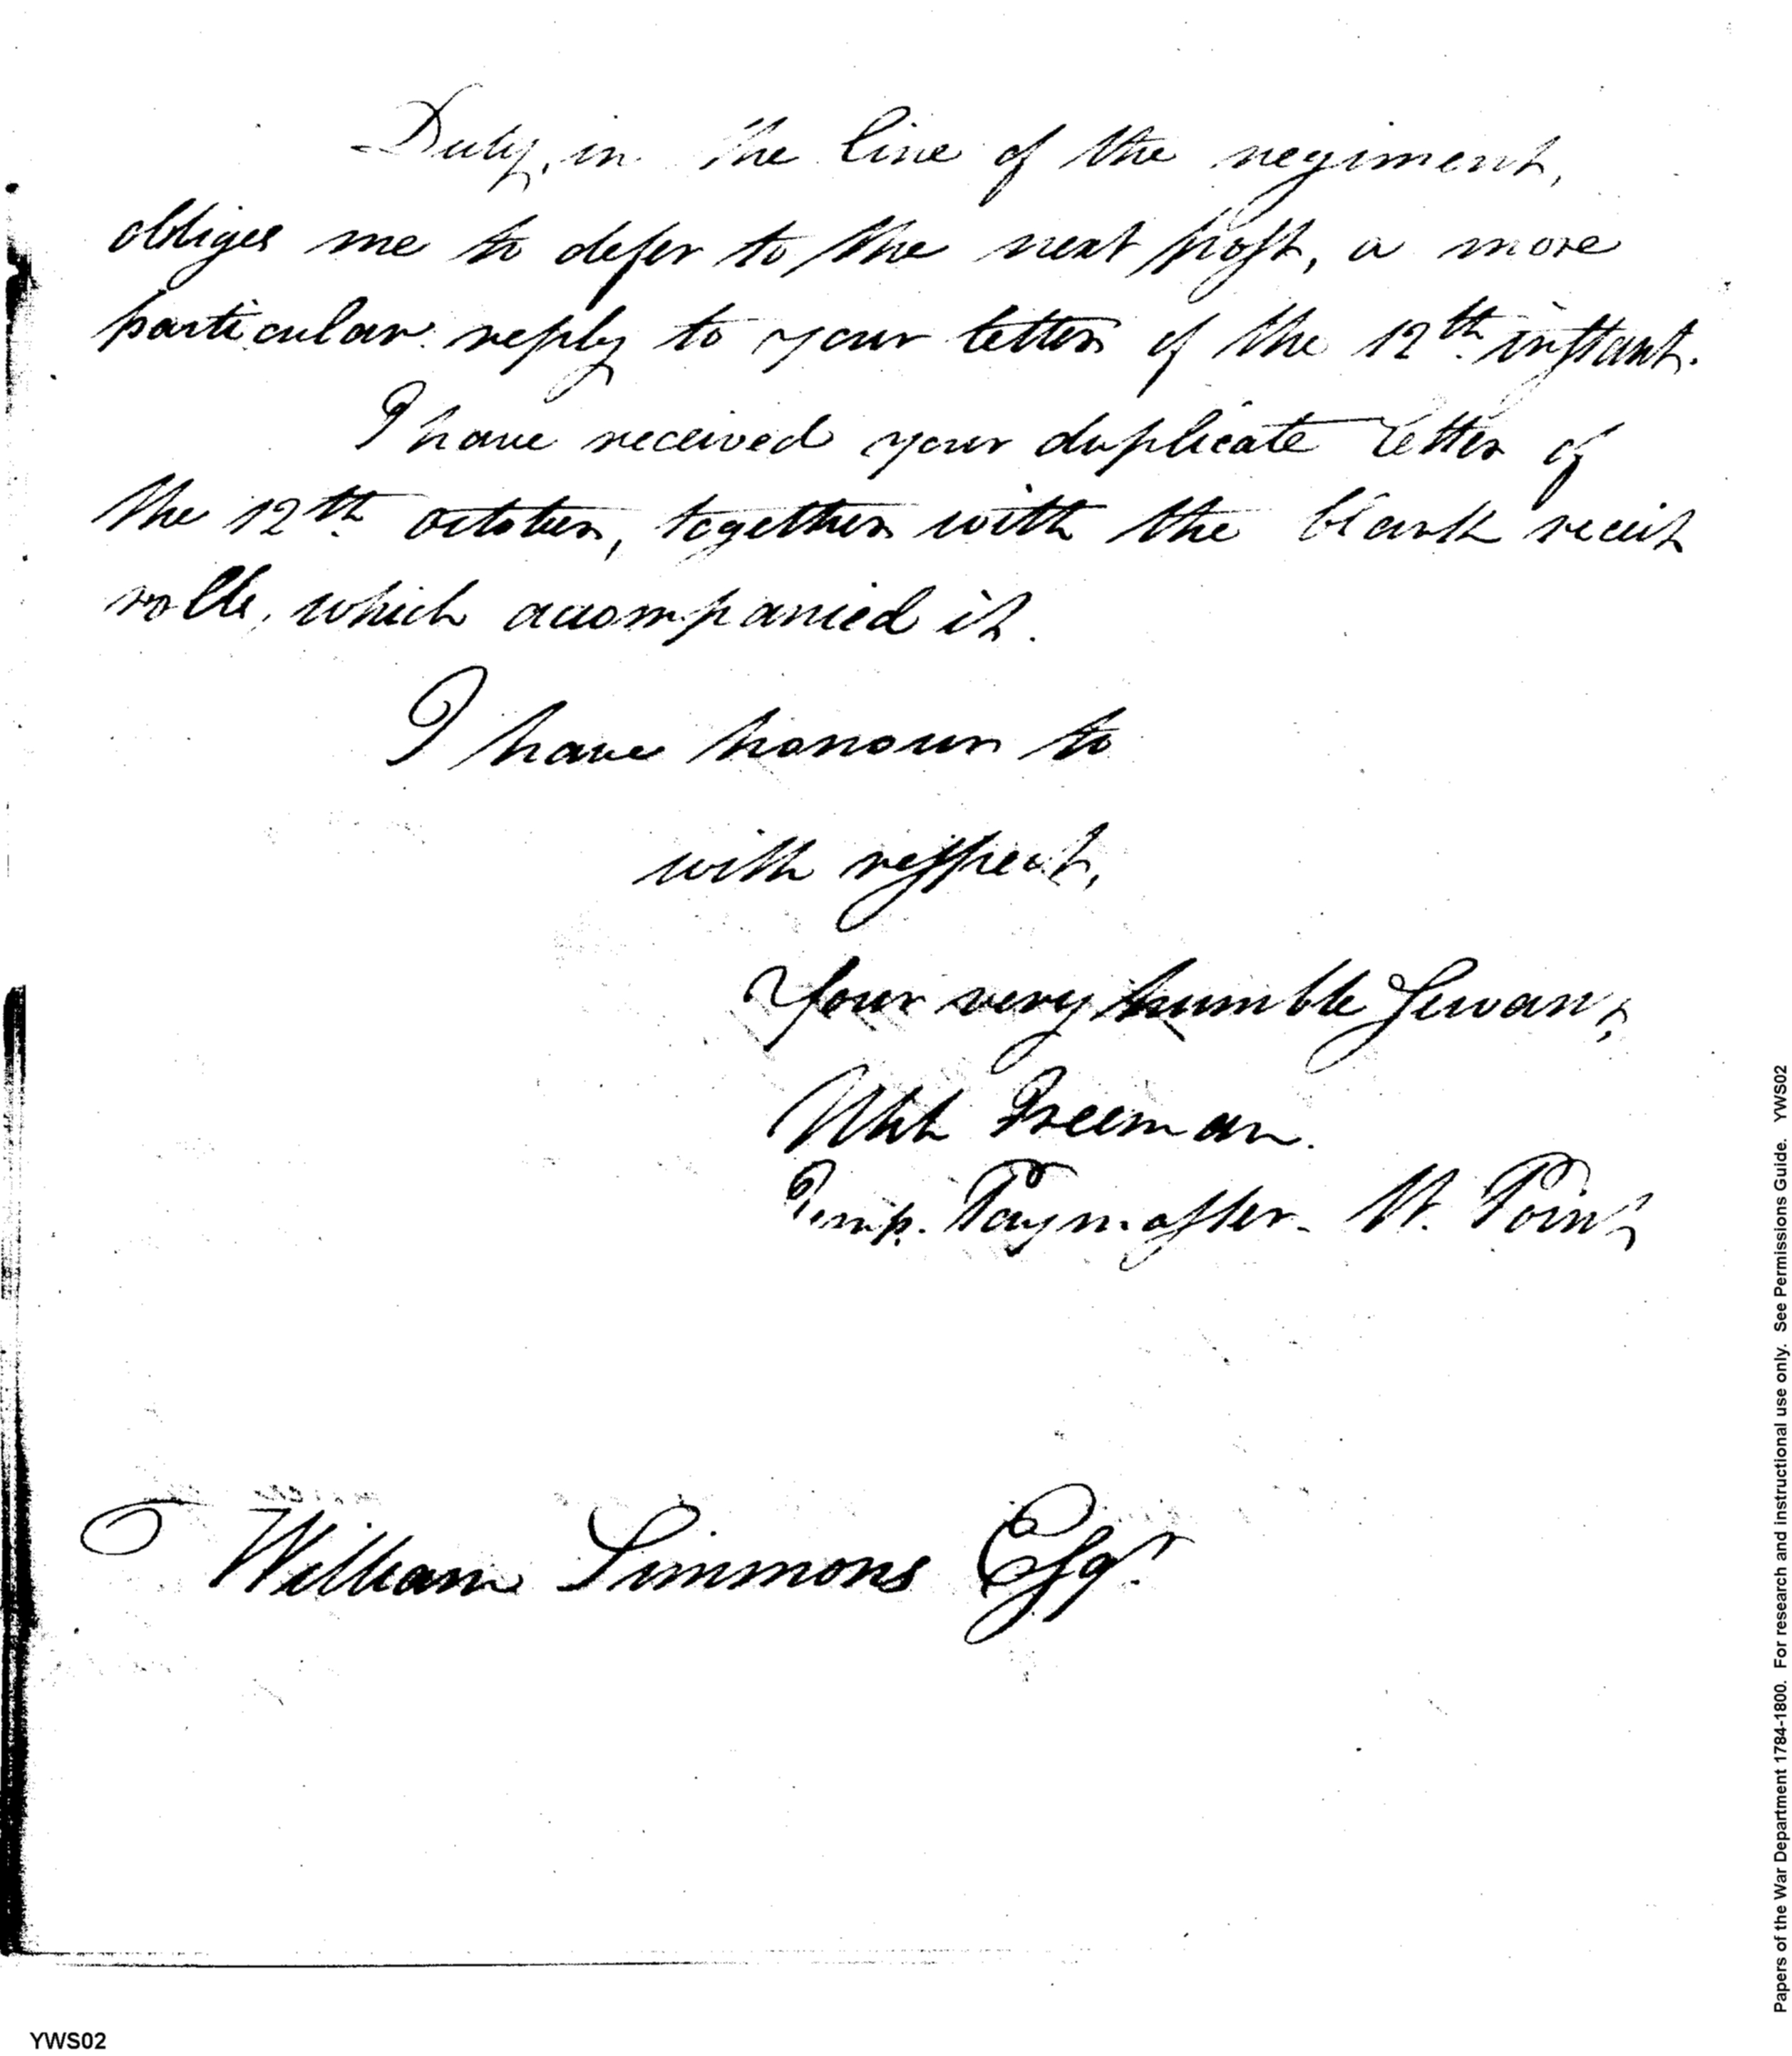 Duty, in the line of the regiment,
obliges me to defer to the next post, a more
particular reply to your letter of the 12th instant.
I have received your duplicate letter of
the 12th october, together with the blank receit
rolls, which accompanied it.
I have honour to
with respect,
Your very humble Servant,
Freeman.
Temp. Paymaster - W. Point
William Simmons Esqr
YWS02
Papers of the War Department 1784-1800. For research and instructional use only. See Permissions Guide. YWS02